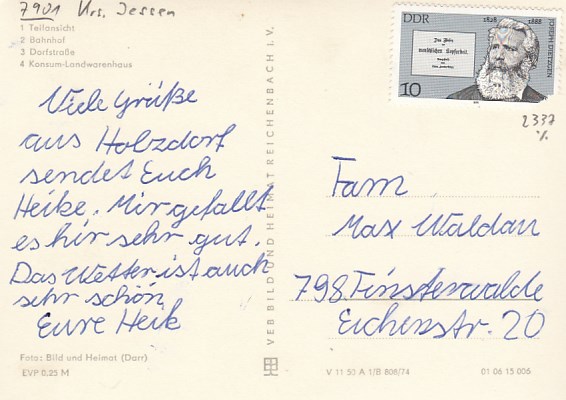 7901 Krs. Jessen
1 Teilansicht
2 Bahnhof
3 Dorfstraße
4 Konsum-Landwarenhaus
Viele Grüße
aus Holzdorf
sendet Euch
Heike. Mir gefällt
es hir sehr gut.
Das Wetter ist auch
sehr schön
Eure Heik
Foto: Bild und Heimat (Darr)
EVP 0,25 M
VEB BILD UND HEIMAT REICHENBACH I. V.
DDR
1828 1888
JOSEPH DIETZGEN
Das Wesen
der
menschlichen Kopfarbeit.
10
2337
Fam
Max Waldau
798 Finsterwalde
Eichenstr. 20
V 11 50 A 1/B 808/74 01 06 15 006